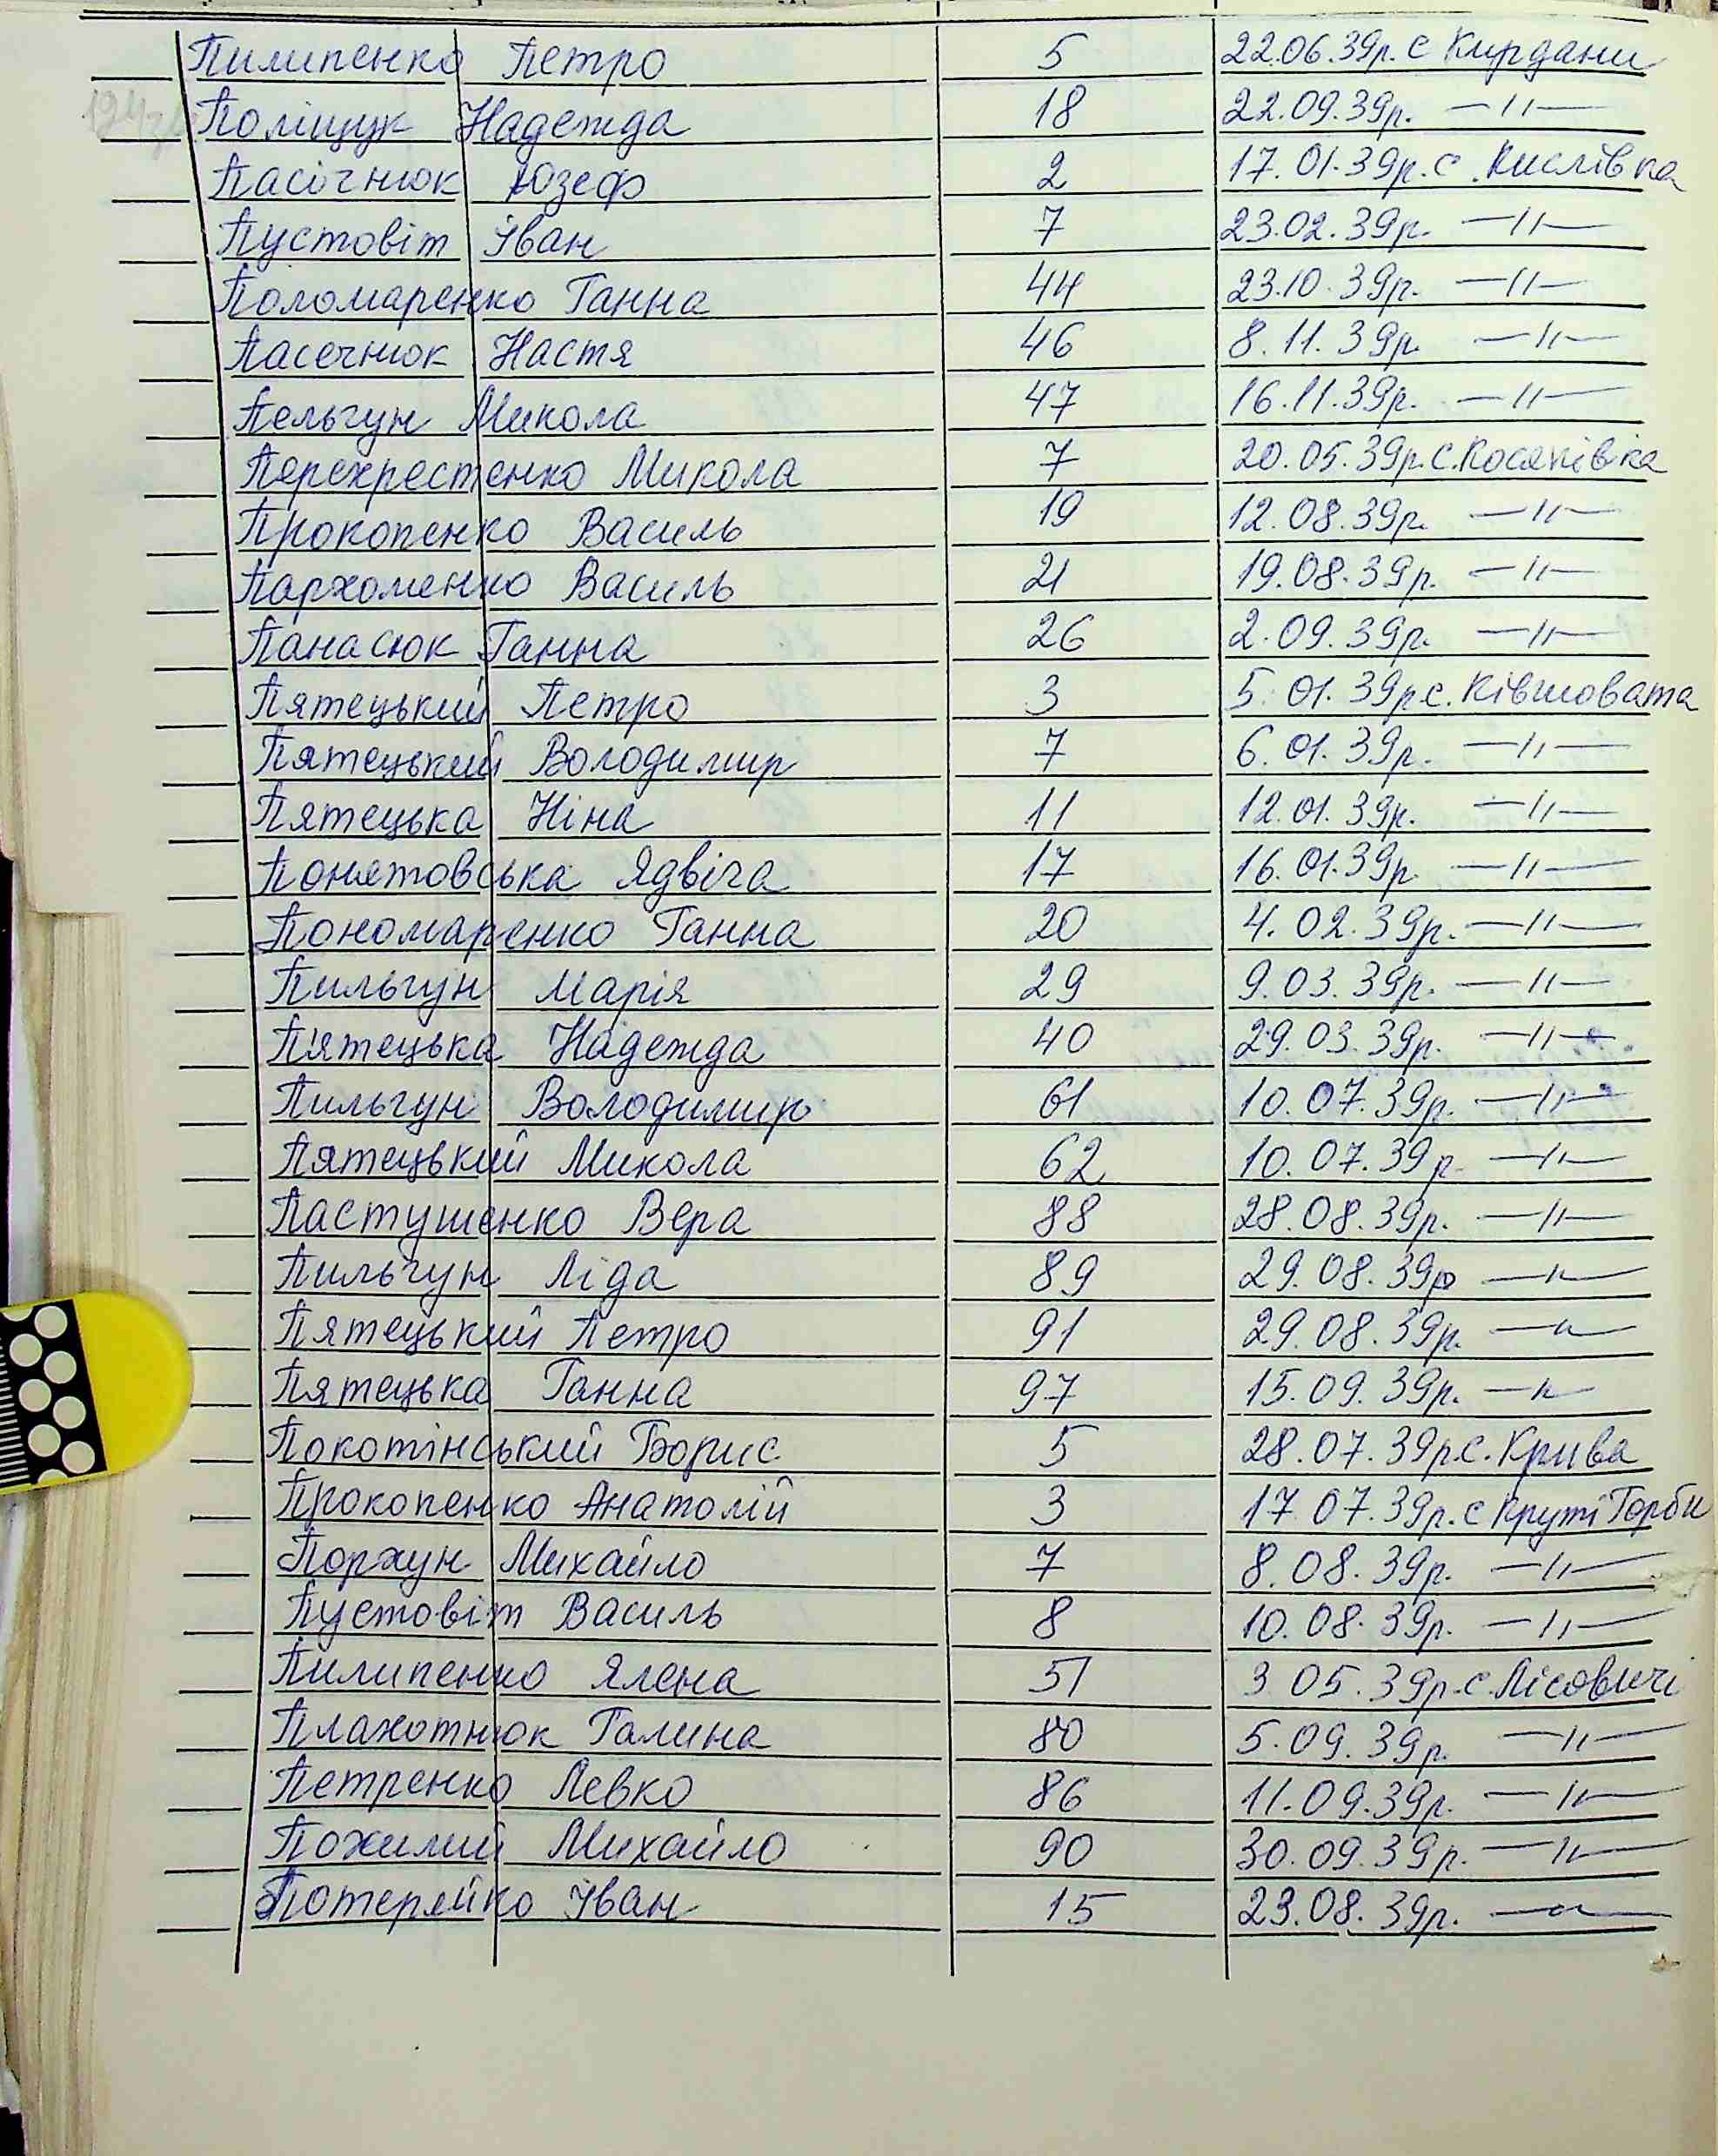 Пилипенко Петро 5 22.06.39р. с Кирдани
Поліщук Надежда 18 22.09.39р. —//—
Пасічнюк Юзеф 2 17.01.39р. с. Кислівка
Пустовіт Іван 7 23.02.39р. —//—
Поломаренко Ганна 44 23.10.39р. —//—
Пасечнюк Настя 46 8.11.39р. —//—
Пельгун Микола 47 16.11.39р. —//—
Перехрестенко Микола 7 20.05.39р. с. Косяківка
Прокопенко Василь 19 12.08.39р. —//—
Пархоменко Василь 21 19.08.39р. —//—
Панасюк Ганна 26 2.09.39р. —//—
Пятецький Петро 3 5.01.39р с. Ківшовата
Пятецький Володимир 7 6.01.39р. —//—
Пятецька Ніна 11 12.01.39р. —//—
Понятовська Ядвіга 17 16.01.39р. —//—
Пономаренко Ганна 20 4.02.39р. —//—
Пильгун Марія 29 9.03.39р. —//—
П'ятецька Надежда 40 29.03.39р. —//—
Пильгун Володимир 61 10.07.39р. —//—
Пятецький Микола 62 10.07.39р. —//—
Пастушенко Вера 88 28.08.39р. —//—
Пильгун Ліда 89 29.08.39р —//—
Пятецький Петро 91 29.08.39р. —//—
Пятецька Ганна 97 15.09.39р. —//—
Покотінський Борис 5 28.07.39р. с. Крива
Прокопенко Анатолій 3 17 07.39р. с Круті Горби
Порхун Михайло 7 8.08.39р. —//—
Пустовіт Василь 8 10.08.39р. —//—
Пилипенко Ялена 51 3 05.39р. с. Лісовичі
Плахотнюк Галина 80 5.09.39р. —//—
Петренко Левко 86 11.09.39р. —//—
Пожилий Михайло 90 30.09.39р. —//—
Потерейко Іван 15 23.08.39р. —//—